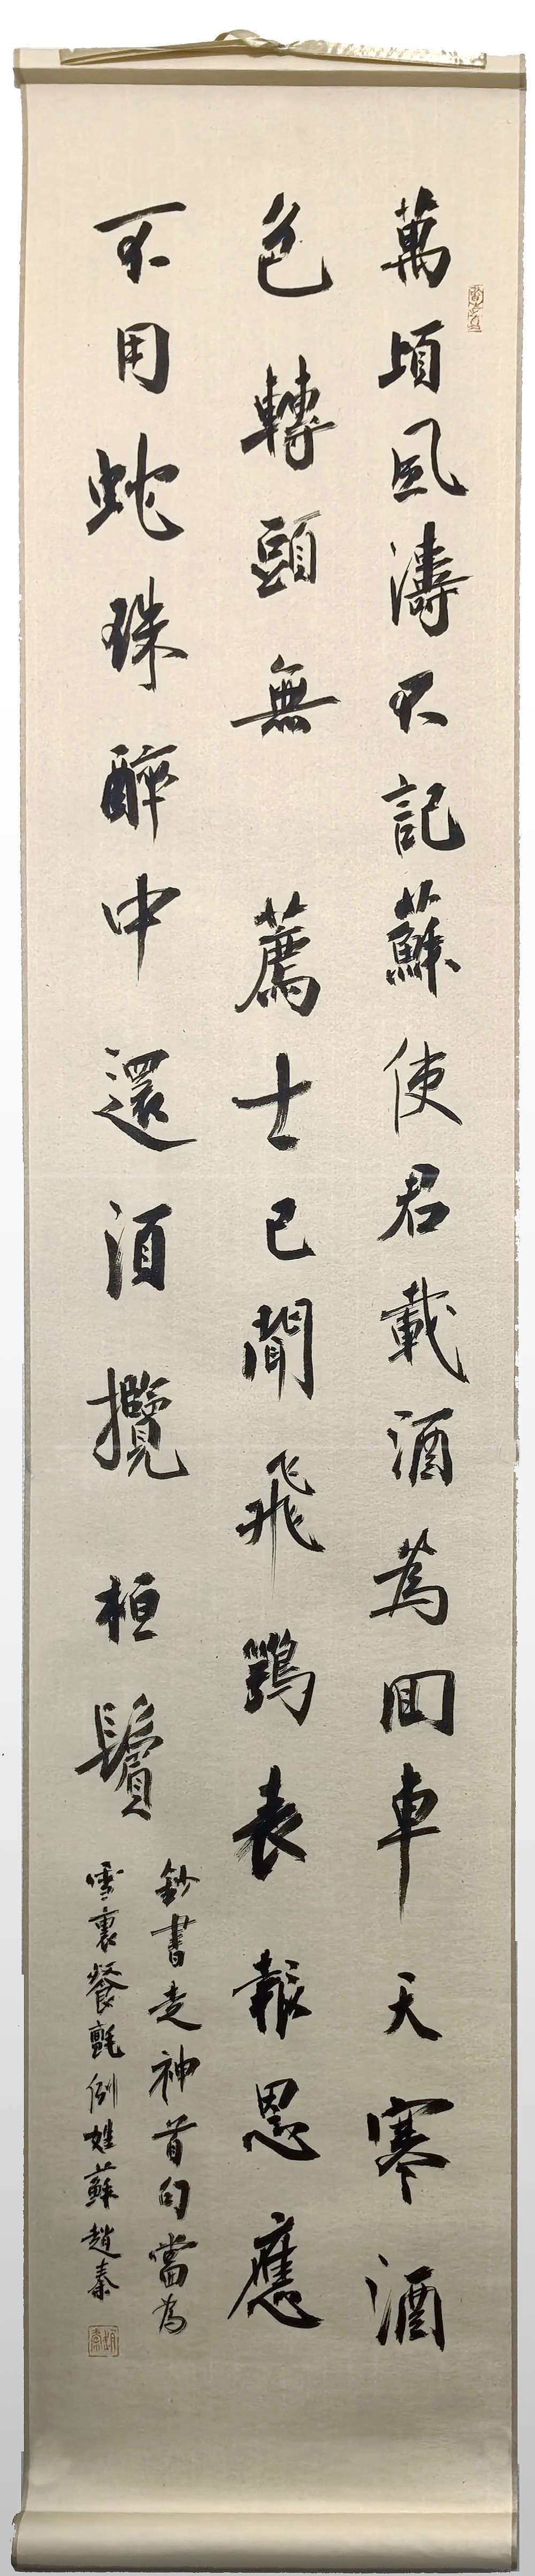 萬頃風濤不記蘇使君載酒為回車天寒酒
色轉頭無薦士已聞飛鶚表報恩應
不用蛇珠醉中還須攬桓鬚
鈔書走神首句當為
雪裏餐氈例姓蘇趙秦